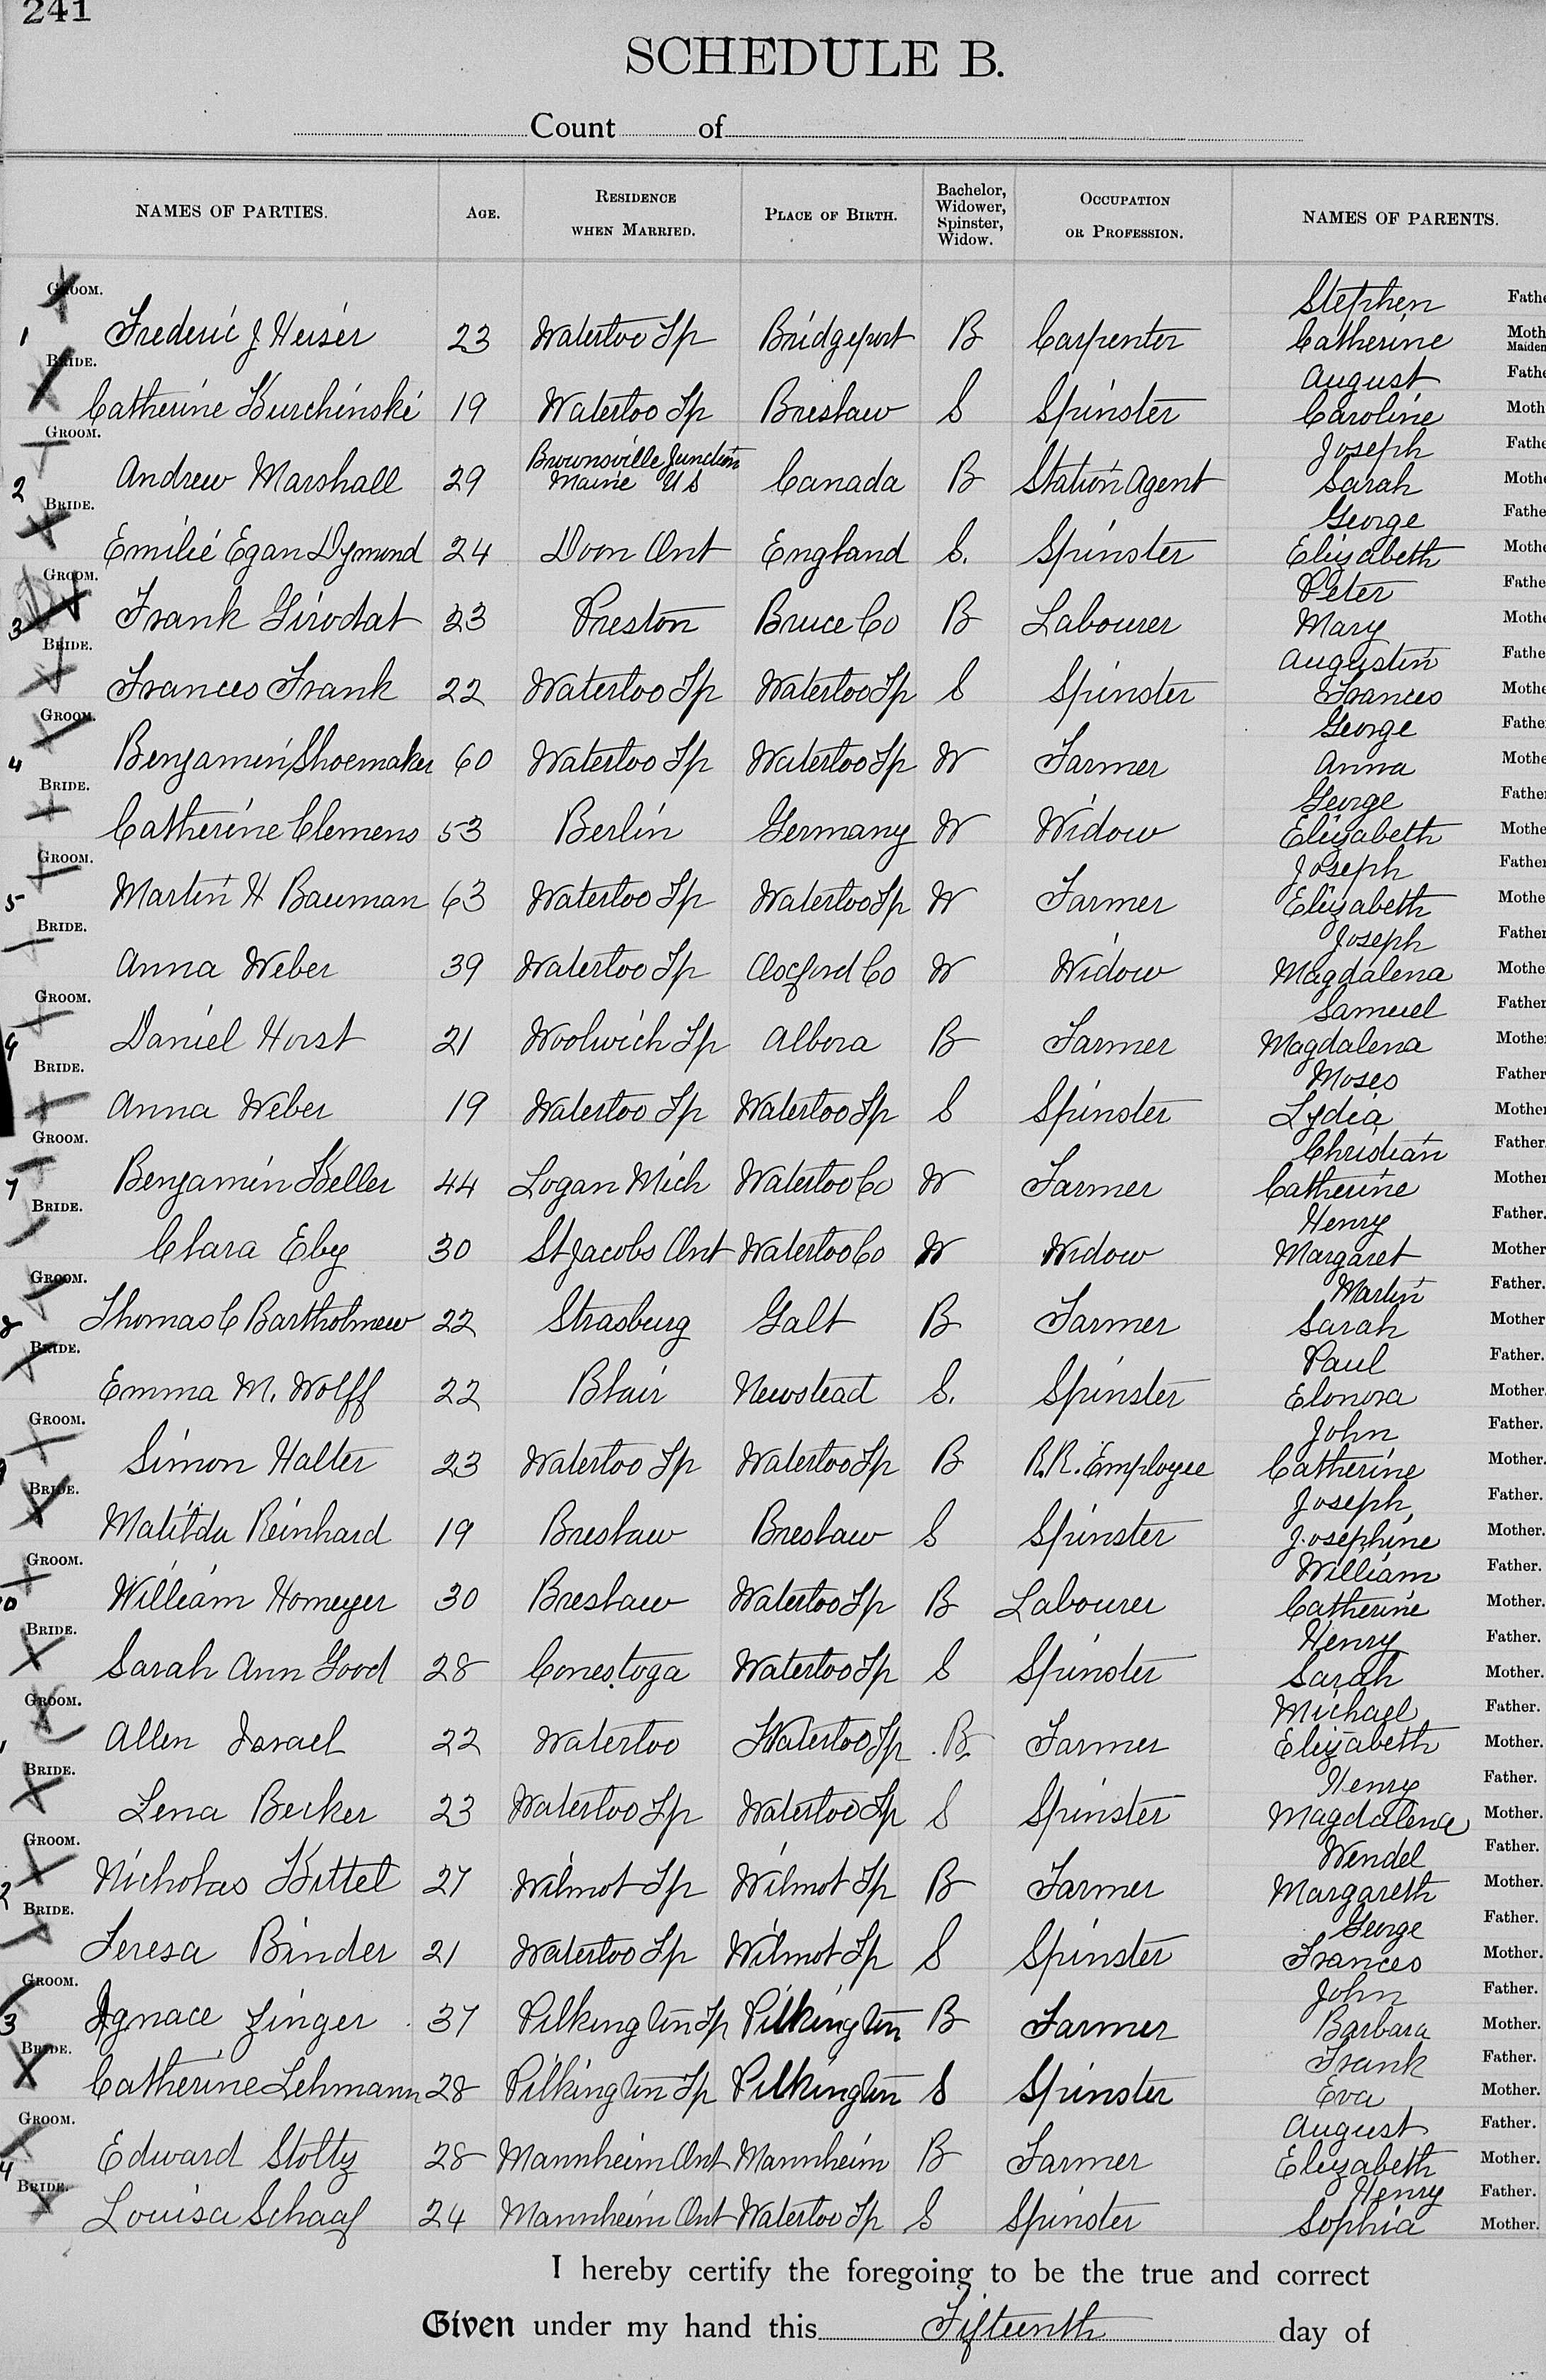 241
SCHEDULE B.
Count of
NAMES OF PARTIES. AGE. RESIDENCE WHEN MARRIED. PLACE OF BIRTH. Bachelor, Widower, Spinster, Widow. OCCUPATION OR PROFESSION. NAMES OF PARENTS.
GROOM. Stephen Fathe
1 Frederic J Heiser 23 Waterloo Tp Bridgeport B Carpenter Catherine Moth Maiden
BRIDE. August Fathe
Catherine Kurchinski 19 Waterloo Tp Breslaw S Spinster Caroline Moth
GROOM. Joseph Fathe
2 Andrew Marshall 29 Brownsville Junction Maine US Canada B Station Agent Sarah Mothe
BRIDE. George Fathe
Emilie Egan Dymond 24 Doon Ont England S. Spinster Elizabeth Mothe
GROOM. Peter Fathe
3 Frank Girodat 23 Preston Bruce Co B Labourer Mary Mothe
BRIDE. Augustin Fathe
Frances Frank 22 Waterloo Tp Waterloo Tp S Spinster Frances Mothe
GROOM. George Father
4 Benjamin Shoemaker 60 Waterloo Tp Waterloo Tp W Farmer Anna Mothe
BRIDE. George Father
Catherine Clemens 53 Berlin Germany W Widow Elizabeth Mothe
GROOM. Joseph Father
5 Martin H Bauman 63 Waterloo Tp Waterloo Tp W Farmer Elizabeth Mothe
BRIDE. Joseph Father
Anna Weber 39 Waterloo Tp Oxford Co W Widow Magdalena Mothe
GROOM. Samuel Father
Daniel Horst 21 Woolwich Tp Albora B Farmer Magdalena Mother
BRIDE. Moses Father
Anna Weber 19 Waterloo Tp Waterloo Tp S Spinster Lydia Mother
GROOM. Christian Father.
7 Benjamin Keller 44 Logan Mich Waterloo Co W Farmer Catherine Mother
BRIDE. Henry Father.
Clara Eby 30 St Jacobs Ont Waterloo Co W Widow Margaret Mother
GROOM. Martin Father.
8 Thomas C Bartholmew 22 Strasburg Galt B Farmer Sarah Mother
BRIDE. Paul Father.
Emma M. Wolff 22 Blair Newstead S. Spinster Elonora Mother.
GROOM. John Father.
Simon Halter 23 Waterloo Tp Waterloo Tp B R.R. Employee Catherine Mother.
BRIDE. Joseph Father.
Matilda Reinhard 19 Breslaw Breslaw S Spinster Josephine Mother.
GROOM. William Father.
0 William Homeyer 30 Breslaw Waterloo Tp B Labourer Catherine Mother.
BRIDE. Henry Father.
Sarah Ann Good 28 Conestoga Waterloo Tp S Spinster Sarah Mother.
GROOM. Michael Father.
Allen Israel 22 Waterloo Waterloo Tp B. Farmer Elizabeth Mother.
BRIDE. Henry Father.
Lena Becker 23 Waterloo Tp Waterloo Tp S Spinster Magdalena Mother.
GROOM. Wendel Father.
2 Nicholas Kittel 27 Wilmot Tp Wilmot Tp B Farmer Margareth Mother.
BRIDE. George Father.
Teresa Binder 21 Waterloo Tp Wilmot Tp S Spinster Frances Mother.
GROOM. John Father.
3 Ignace Zinger 37 Pilkington Tp Pilkington B Farmer Barbara Mother.
BRIDE. Frank Father.
Catherine Lehmann 28 Pilkington Tp Pilkington S Spinster Eva Mother.
GROOM. August Father.
4 Edward Stoltz 28 Mannheim Ont Mannheim B Farmer Elizabeth Mother.
BRIDE. Henry Father.
Louisa Schaaf 24 Mannheim Ont Waterloo Tp S Spinster Sophia Mother.
I hereby certify the foregoing to be the true and correct
Given under my hand this Fifteenth day of